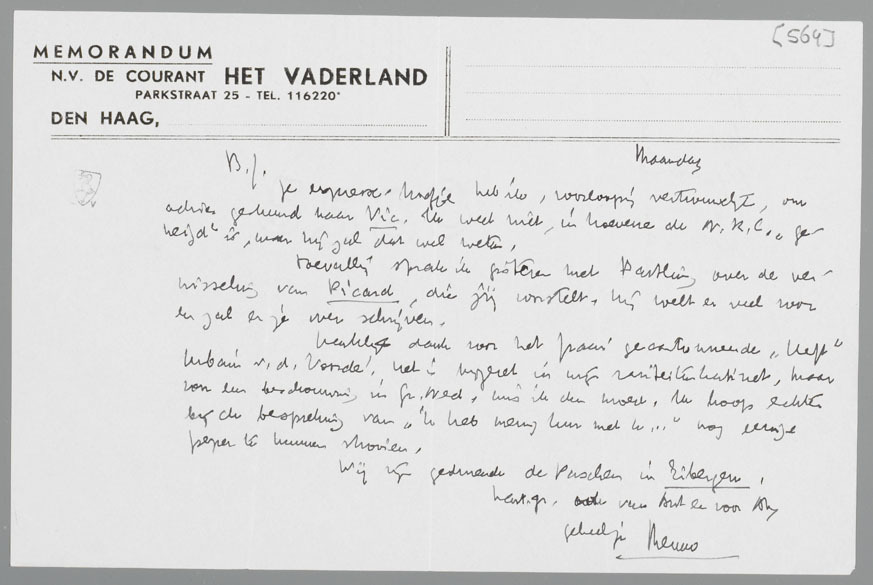 [564]
MEMORANDUM
N.V. DE COURANT HET VADERLAND
PARKSTRAAT 25 - TEL. 116220*
DEN HAAG,
Maandag
B.J.
je expresse- heb ik, voorloopig, om
advies gestuurd naar Vic. Ik weet niet, in hoeverre de N.R.C. „ge-
" is, maar hij zal dat wel weten.
Toevallig sprak ik gisteren met over de ver-
wisseling van Picard, die jij voorstelt. Hij voelt er veel voor
en zal er je over schrijven.
Hartelijk dank voor het fraai „Heft"
Urbain v.d. Voorde! Het is in mijn rariteitenkabinet, maar
voor een beschouwing in Gr. Ned. mis ik den moed. Ik hoop echter
bij de bespreking van „Ik heb menig uur met u..." nog eenige
peper te kunnen strooien.
Wij zijn gedurende de Paschen in Eibergen.
hart. gr. van Ant en voor
geheel je Menno